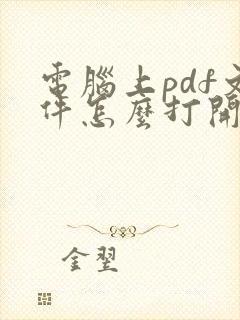 電腦上pdf文
件怎麼打開
金翌